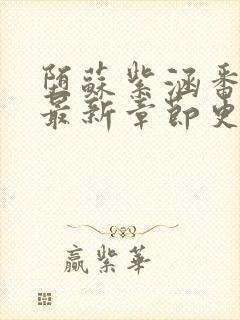 陌蘇紫涵番
最新章節史
贏紫華